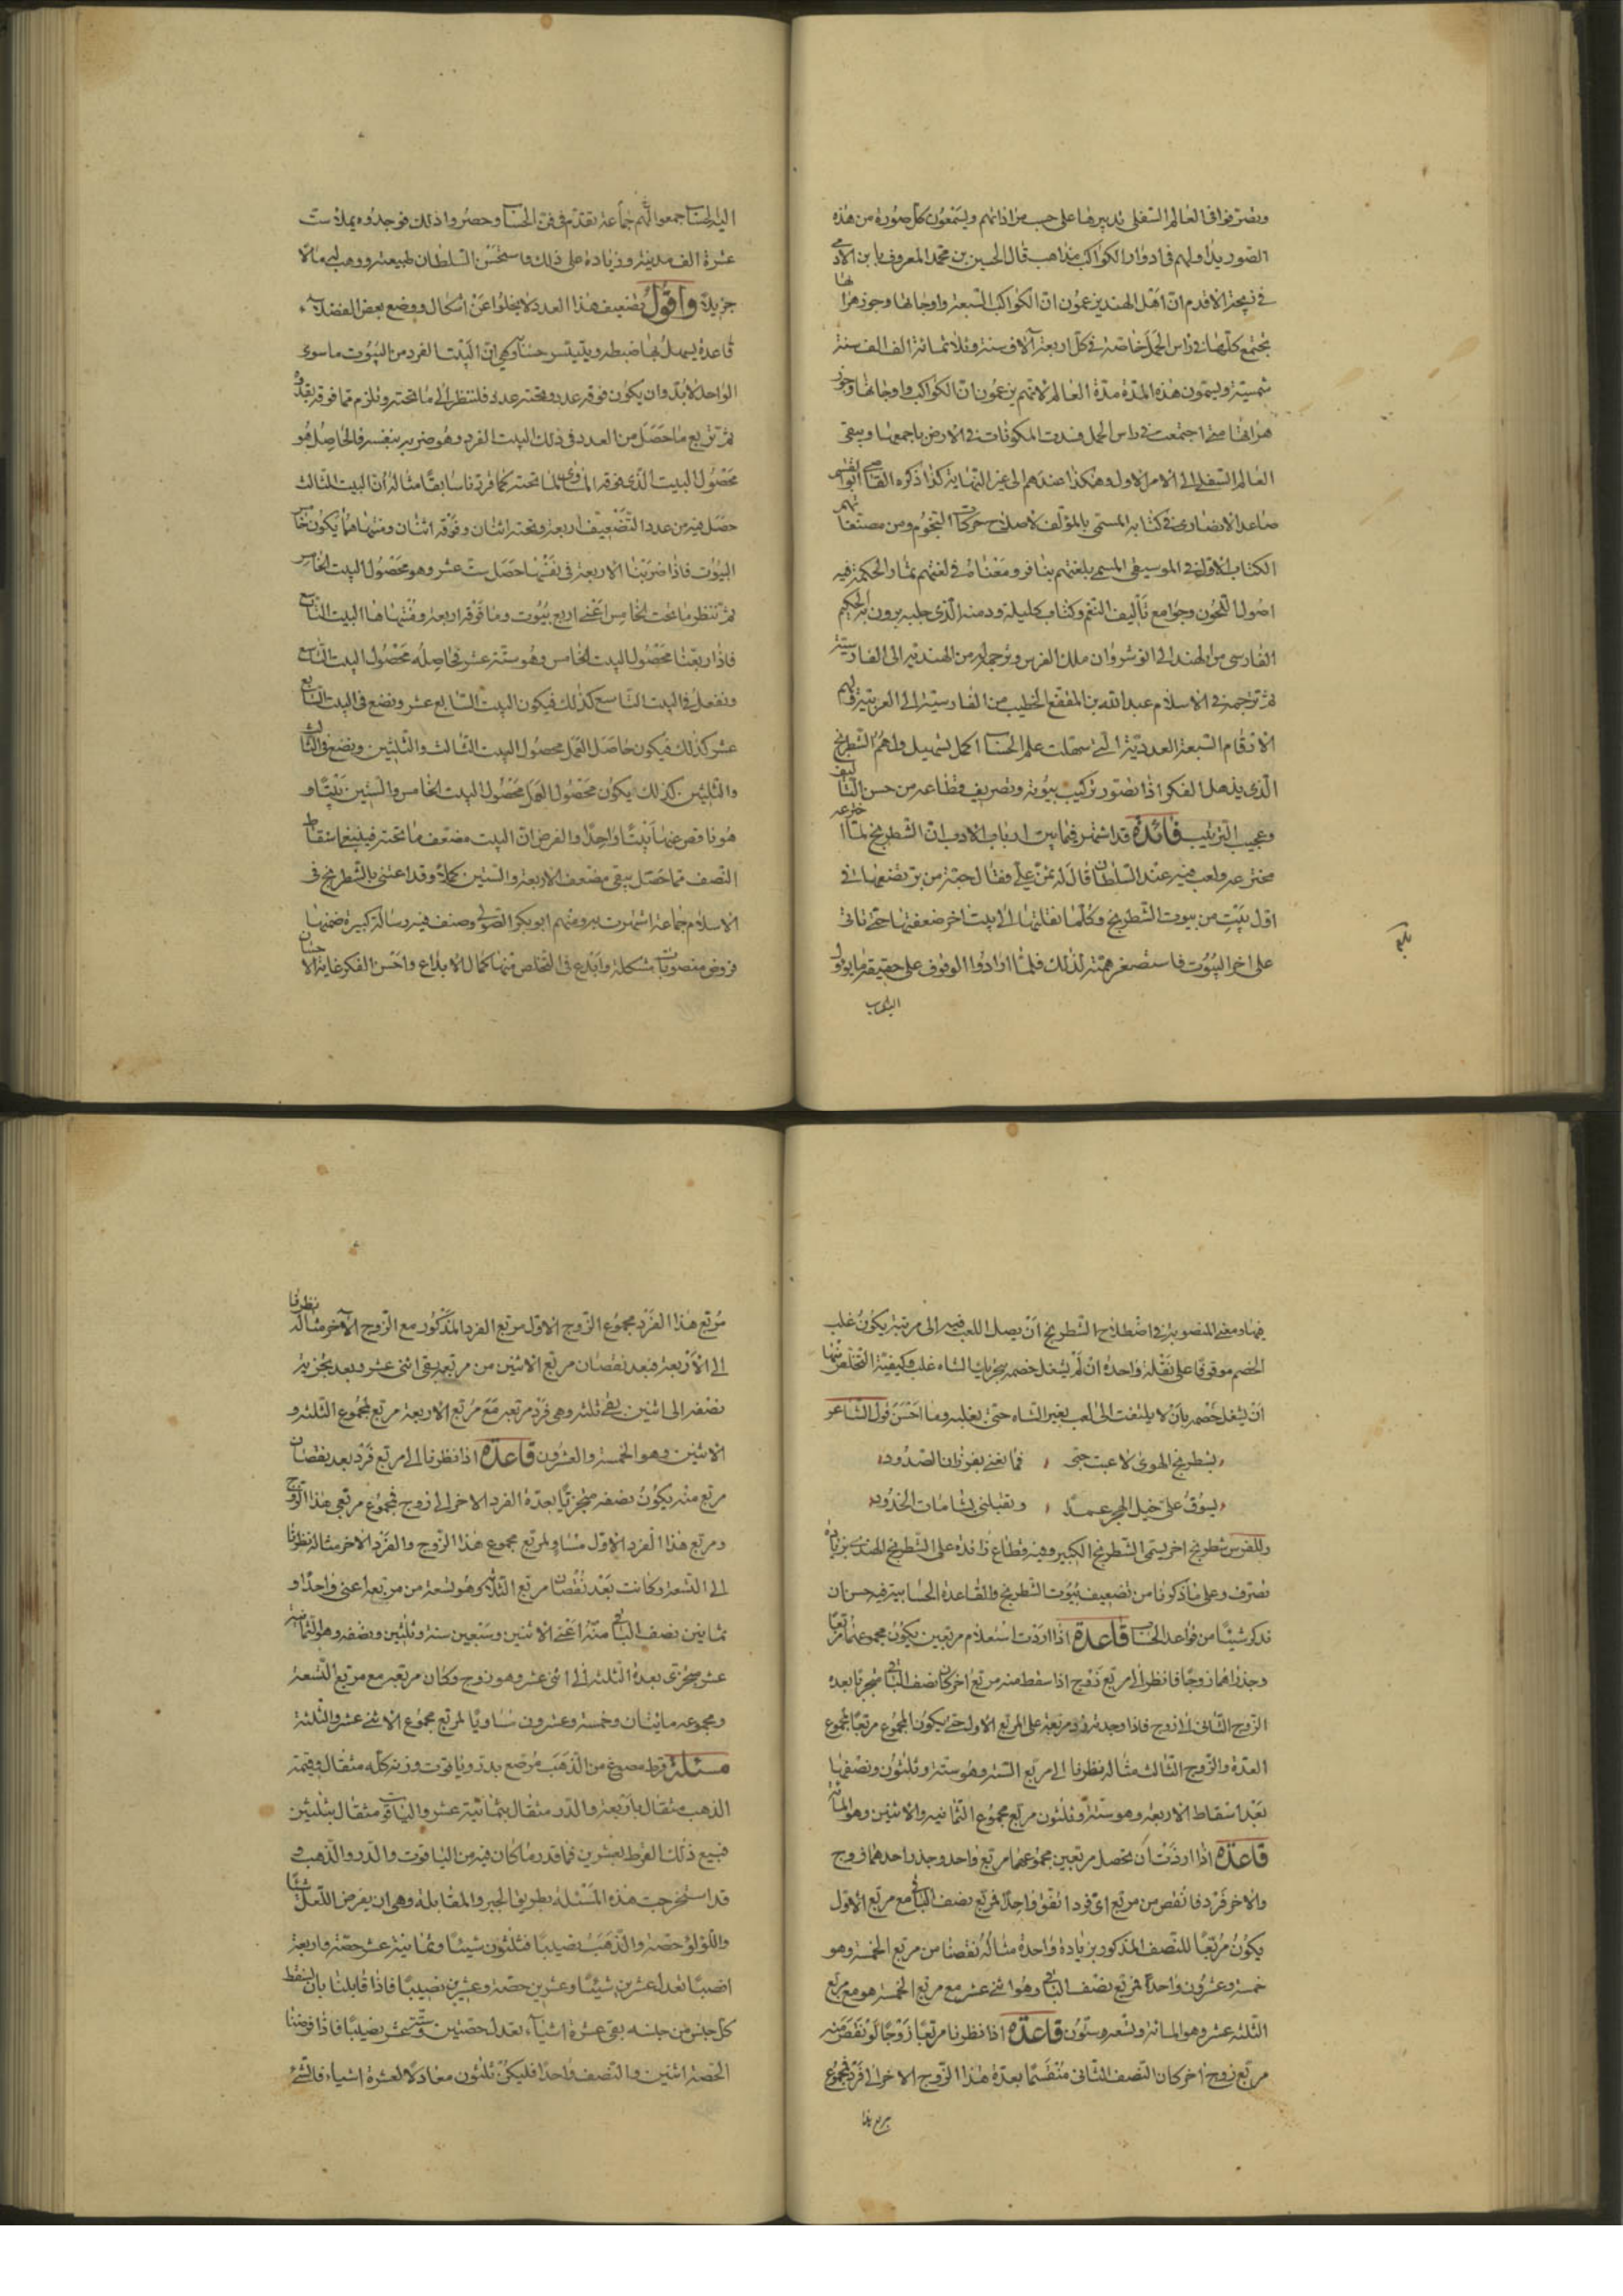 وتصرفوا في العالم السفلي تدبيرها على حسب مراداتهم ويسمعون كل صورة من هذه
الصور يدا ولهم في ادوار الكواكب مذاهب قال الحسين بن محمد المعروف بابن الادمي
في زيجه الاقدم ان اهل الهند يزعمون ان الكواكب السبعة واوجاتها وجوزهراتها
تجتمع كلها في راس الحمل خاصة في كل اربعة آلاف سنة وثلاثمائة الف الف سنة
شمسية ويسمون هذه المدة مدة العالم لانهم يزعمون ان الكواكب واوجاتها وجوز
هراتها متى اجتمعت في راس الحمل فسدت المكونات في الارض باجمعها ويبقى
العالم السفلي الى الامر الاول وهكذا عندهم الى غير النهاية كذا ذكره القاضي ابو القسم
صاعد الانصاري في كتابه المسمى بالمؤلف لاصلاح حركات النجوم ومن مصنفاتهم
الكتاب الاول في الموسيقى المسمى بلغتهم بنافر ومعناه في لغتهم ثمار الحكمة فيه
اصول اللحون وجوامع تأليف النغم وكتاب كليلة ودمنه الذي جلبه برون بن الحكيم
الفارسي من الهند الى انوشروان ملك الفرس وترجمه له من الهندية الى الفارسية
ثم ترجمه في الاسلام عبد الله بن المقفع الخطيب من الفارسية الى العربية ولهم
الارقام السبعة العددية التي سهلت علم الحساب اكمل تسهيل ولهم الشطرنج
الذي يذهل الفكر اذا تصور تركيب بيوته وتصريف قطاعه من حسن التاليف
وعجيب الترتيب فائدة قد اشتهر فيما بين ارباب الادب ان الشطرنج لما اخترعه
مخترعه ولعب فيه عند السلطان قال له تمن علي فقال حبة من بر تضعها في
اول بيت من بيوت الشطرنج وكلما نقلتها الى بيت اخر ضعفتها حتى تاتي
على اخر البيوت فاستصغر همته لذلك فلما ارادوا الوقوف على حقيقة ما يؤول
اليه الحساب
بلغ
اليه الحساب جمعوا لهم جماعة تقدم في فن الحساب وحصروا ذلك فوجدوه يملأ ست
عشرة الف مدينة وزيادة على ذلك فاستحسن السلطان طبيعته ووهب له مالا
جزيلا واقول تضعيف هذا العدد لا يخلوا عن اشكال ووضع بعض الفضلاء
قاعدة يسهل بها ضبطه ويتيسر حسابه وهي ان البيت الفرد من البيوت ما سوى
الواحد لا بد وان يكون فوقه عدد وتحته عدد فلننظر الى ما تحته ونلزم مما فوقه بقدره
ثم نربع ما حصل من العدد في ذلك البيت الفرد وهو ضربه بنفسه فالحاصل هو
محصول البيت الذي فوقه المساوى لما تحته كما قررنا سابقا مثاله ان البيت الثالث
حصل فيه من عدد التضعيف اربعة وتحته اثنان وفوقه اثنان ومنتهاهما يكون خامس
البيوت فاذا ضربنا الاربعة في نفسها حصل ست عشر وهو محصول البيت الخامس
ثم ننظر ما تحت الخامس اعني اربع بيوت وما فوقه اربعة ومنتهاها البيت التاسع
فاذا ربعنا محصول البيت الخامس وهو ستة عشر فحاصله محصول البيت التاسع
ونفعل في البيت التاسع كذلك فيكون البيت السابع عشر ونضع في البيت السابع
عشر كذلك فيكون حاصل العمل محصول البيت الثالث والثلثين ونضع في الثالث
والثلثين كذلك يكون محصول العمل محصول البيت الخامس والستين بيتا و
هو ناقص عنها بيتا واحدا والفرض ان البيت مضعوف ما تحته فينبغي اسقاط
النصف مما حصل يبقى مضعف الاربعة والستين كملا وقد اعتنى بالشطرنج في
الاسلام جماعة اشتهرت به ومنهم ابو بكر الصولي وصنف فيه رسالة كبيرة ضمنها
فروض منصوبات مشكلة وابدع في التخلص منها كمال الابداع واحسن الفكر غاية الاحسان
فيها ومعنى المنصوبة في اصطلاح الشطرنج ان يصل اللعب فيه الى مرتبة يكون غلب
الخصم موقوفا على نقلة واحدة ان لم يشغل خصمه بتحريك الشاه غلب وكيفية التخلص منها
ان يشغل خصمه بان لا يلتفت الى لعب بغير الشاه حتى يغلبه وما احسن قول الشاعر
بشطرنج الهوى لاعبت حبى ، فما نغني بفرزان الصدود
يسوق على خيل الهجر عمدا ، وتقبلني بشامات الخدود
وللفرس شطرنج اخر يسمى الشطرنج الكبير وفيه قطاع زائدة على الشطرنج الهندي بزيادة
تصرف وعلى ما ذكرنا من تضعيف بيوت الشطرنج والقاعدة الحسابية فيه حسن ان
نذكر شيئا من قواعد الحساب قاعدة اذا اردت استعلام مربعين يكون مجموعهما مربعا
وجذراهما زوجا فانظر الى مربع زوج اذا سقط منه مربع اخر كان نصف الباقي متجزيا بعده
الزوج الثاني الى زوج فاذا وجدته زد مربعه على المربع الاول حتى يكون المجموع مربعا لمجموع
العدة والزوج الثالث مثاله نظرنا الى مربع الستة وهو ستة وثلثون ونصفها
بعد اسقاط الاربعة وهو ستة وثلثون مربع مجموع الثمانية والاثنين وهو المائة
قاعدة اذا اردت ان يحصل مربعين مجموعهما مربع واحد وجذر احدهما زوج
والاخر فرد فانقص من مربع اي فرد اتفق واحدا فمربع نصف الباقي مع مربع الاول
يكون مربعا للنصف المذكور بزيادة واحدة مثاله نقصنا من مربع الخمسة وهو
خمسة وعشرون واحدا فمربع نصف الباقي وهو اثنى عشر مع مربع الخمسة هو مربع
الثلثة عشر وهو المائة وتسعة وستون قاعدة اذا نظرنا مربعا زوجا لو نقص منه
مربع زوج اخر كان النصف الثاني منقسما بعدة هذا الزوج الاخر الى فرد فمجموع
مربع هذا
مربع هذا الفرد مجموع الزوج الاول مربع الفرد المذكور مع الزوج الآخر مثاله نظرنا
الى الاربعة فبعد نقصان مربع الاثنين من مربعه بقى اثنى عشر وبعد تجزية
نصفه الى اثنين بقى ثلثة وهي فرد مربعه مع مربع الاربعة مربع لمجموع الثلثة و
الاثنين وهو الخمسة والعشرون قاعدة اذا نظرنا الى مربع فرد بعد نقصان
مربع منه يكون نصفه متجزيا بعدة الفرد الاخر الى زوج فمجموع مربعى هذا الزوج
ومربع هذا الفرد الاول مساو لمربع مجموع هذا الزوج والفرد الاخر مثاله نظرنا
الى التسعة وكانت بعد نقصان مربع الثلاثة وهو تسعة من مربعه اعنى واحدا و
ثمانين نصف الباقي منه اعني الاثنين وسبعين ستة وثلثين ونصفه وهو الثمانية
عشر متجزى بعدة الثلثة الى اثنى عشر وهو زوج وكان مربعه مع مربع التسعة
ومجموعه مائتان وخمسة وعشرون مساويا لمربع مجموع الاثنى عشر والثلثة
مسئلة قرط مصوغ من الذهب مرصع بدر وياقوت وزنة كله مثقال وقيمة
الذهب مثقال باربعة والدر مثقال بثمانية عشر والياقوت مثقال بثلثين
فبيع ذلك القرط بعشرين فما قدر ما كان فيه من الياقوت والدر والذهب و
قد استخرجت هذه المسئلة بطريق الجبر والمقابلة وهى ان يفرض اللعل شيئا
واللؤلؤ حصة والذهب نصيبا فثلثون شيئا وثمانية عشر حصة واربعة
انصبا تعدل عشرين شيئا وعشرين حصة وعشرين نصيبا فاذا قابلنا بان نسقط
كل جنس من جنسه بقى عشرة اشياء تعدل حصتين وستة عشر نصيبا فاذا فرضنا
الحصة اثنين والنصف واحدا فليكن ثلثون معادلا لعشرة اشياء فالشئ